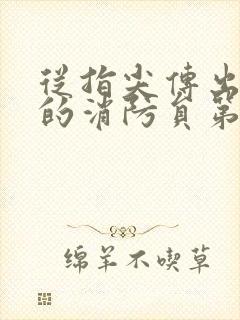 從指尖傳出
的消防員第
绵羊不喫草